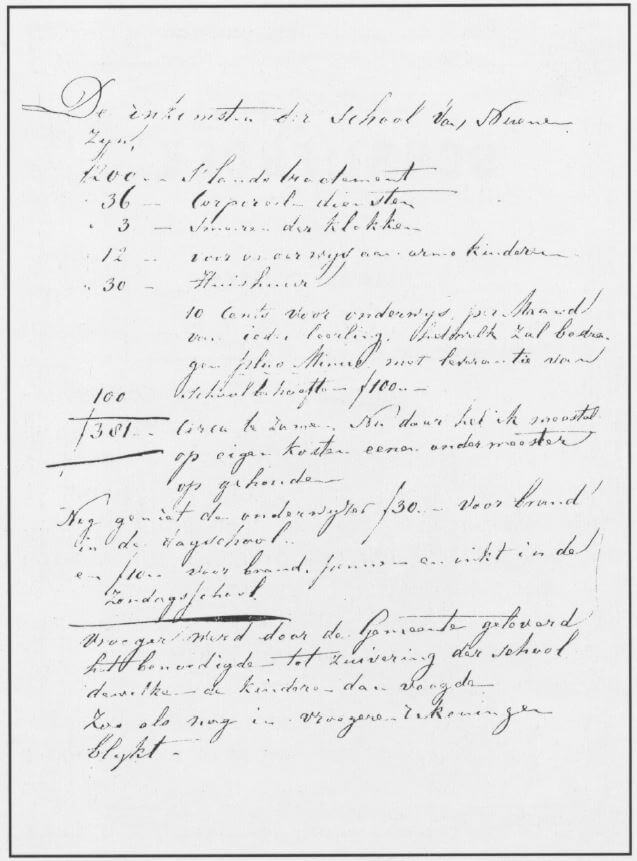 De inkomsten der School van Nuenen
Zyn,
ƒ200 -- 's Lands tractement
" 36 — Corpereele diensten
" 3 — Smeren der klokken
" 12 — voor onderwys aan arme kinderen
" 30 — Huishuur
10 Cents voor onderwys, per Maand
van ieder leerling, hetwelk zal bedra-
gen plus Minus met leverantie van
100 Schoolbehoeften ƒ100 --
ƒ381 -- Circa te zamen. Nu daar heb ik meestal
op eigen kosten eenen ondermeester
op gehouden
Nog geniet de onderwyzer ƒ30 -- voor brand
in de dagschool.
en ƒ10 -- voor brand, pennen en inkt in de
Zondagsschool.
Vroeger werd door de Gemeente geleverd
het benoodigde tot zuivering der school
dewelke de kinderen dan veegde
Zoo als nog in vroegere rekeningen
blykt -